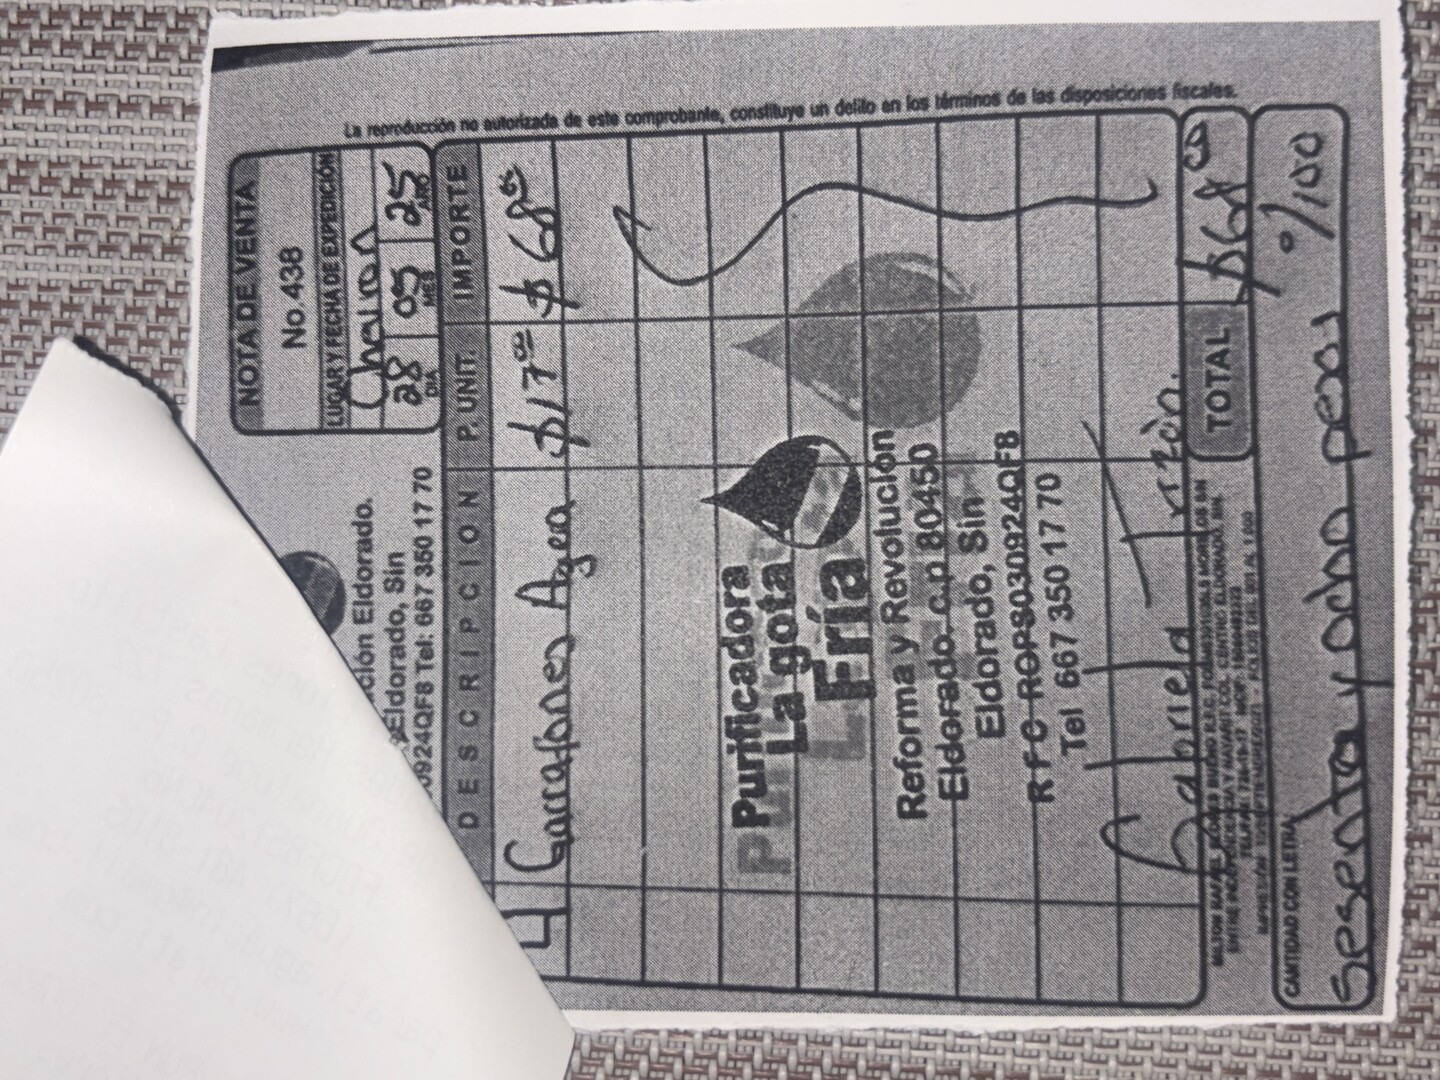 La reproducción no autorizada de este comprobante, constituye un delito en los términos de las disposiciones fiscales.
NOTA DE VENTA
No.438
LUGAR Y FECHA DE EXPEDICIÓN
28 05 25
DIA MES AÑO
ción Eldorado.
Eldorado, Sin
0924QF8 Tel: 667 350 17 70
DESCRIPCION P. UNIT. IMPORTE
4 Garrafones Agua $17 00 $68 00
Purificadora
La gota
Fría
Reforma y Revolución
Eldorado. c.p 80450
Eldorado, Sin
R F C ROPS030924QF8
Tel 667 350 17 70
Gabriela
TOTAL $68
CANTIDAD CON LETRA
sesenta y ocho pesos %100